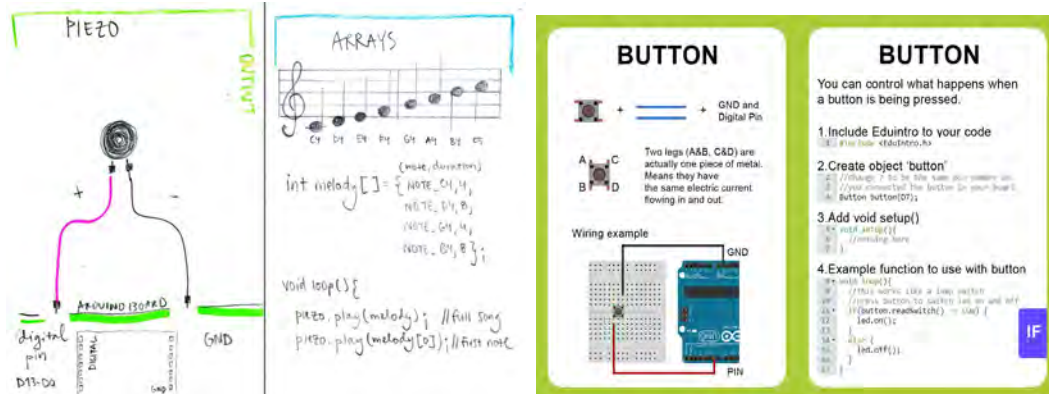 PIEZO
OUTPUT
+
-
ARDUINO BOARD
digital
pin
D13-D0
DIGITAL
GND
GND
ARRAYS
C4 D4 E4 F4 G4 A4 B4 C5
(note, duration)
int melody[] = { NOTE_C4,4,
NOTE_D4,8,
NOTE_G4,4,
void loop(){
piezo.play(melody); //full song
piezo.play(melody[0]); //first note
BUTTON
+
+
GND and
Digital Pin
A
C
B
D
Two legs (A&B, C&D) are
actually one piece of metal.
Means they have
the same electric current
flowing in and out.
Wiring example
GND
PIN
BUTTON
You can control what happens when
a button is being pressed.
1.Include Eduintro to your code
#include <EduIntro.h>
2.Create object 'button'
Button button(D7);
3.Add void setup()
void setup(){
//nothing here
}
4.Example function to use with button
void loop(){
//this works like a lamp switch
//press button to switch led on and off
if(button.readSwitch() == LOW) {
led.on();
}
else {
led.off();
}
}
IF